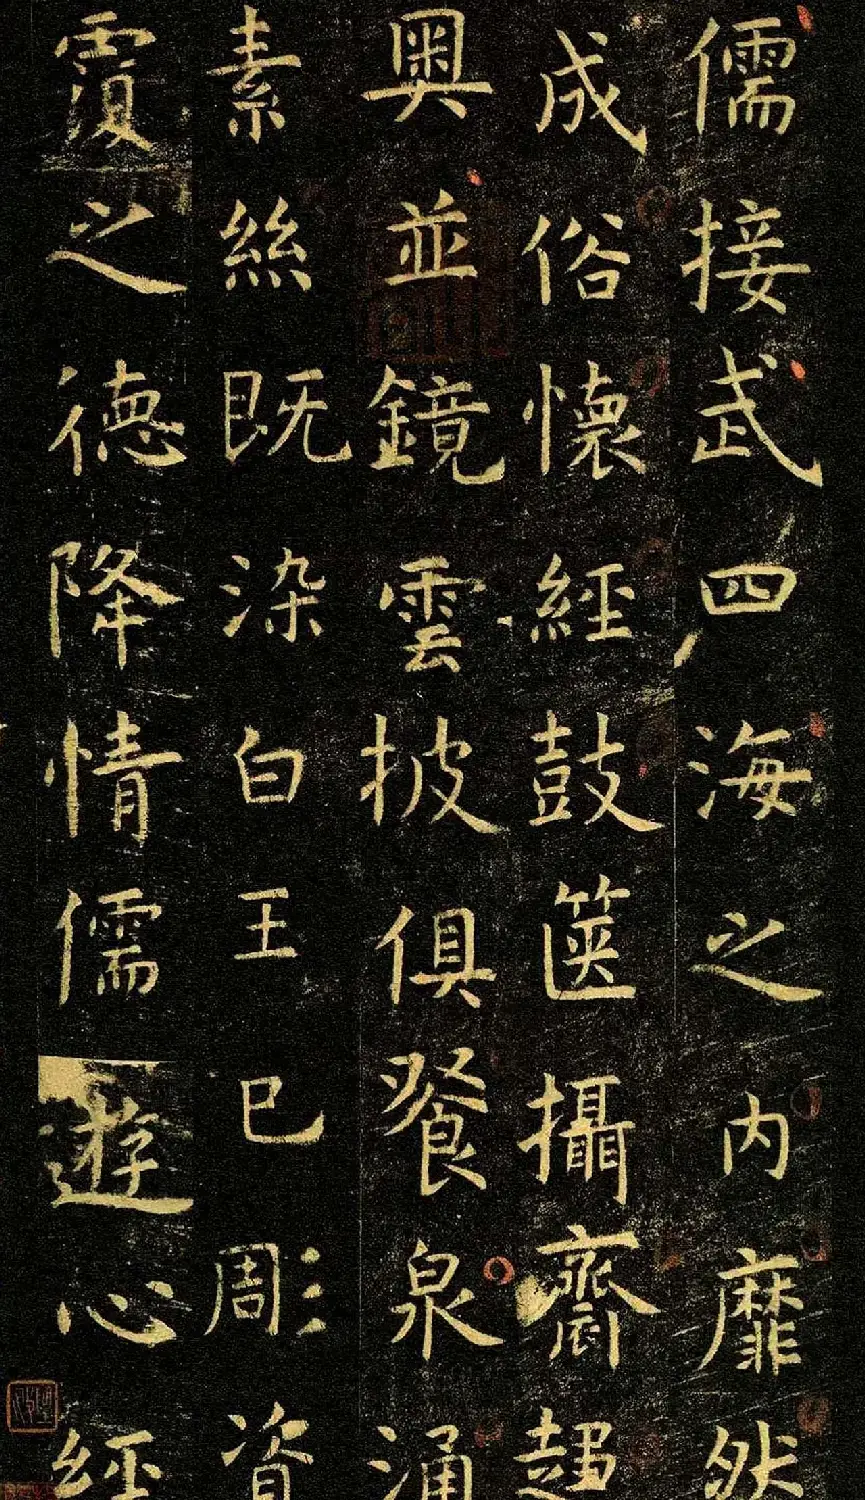 儒接武四海之内靡然
成俗懷經鼓篋攝齋趍
奥並鏡雲披俱飡泉涌
素絲既染白王已彫資
覆之德降情儒遊心經